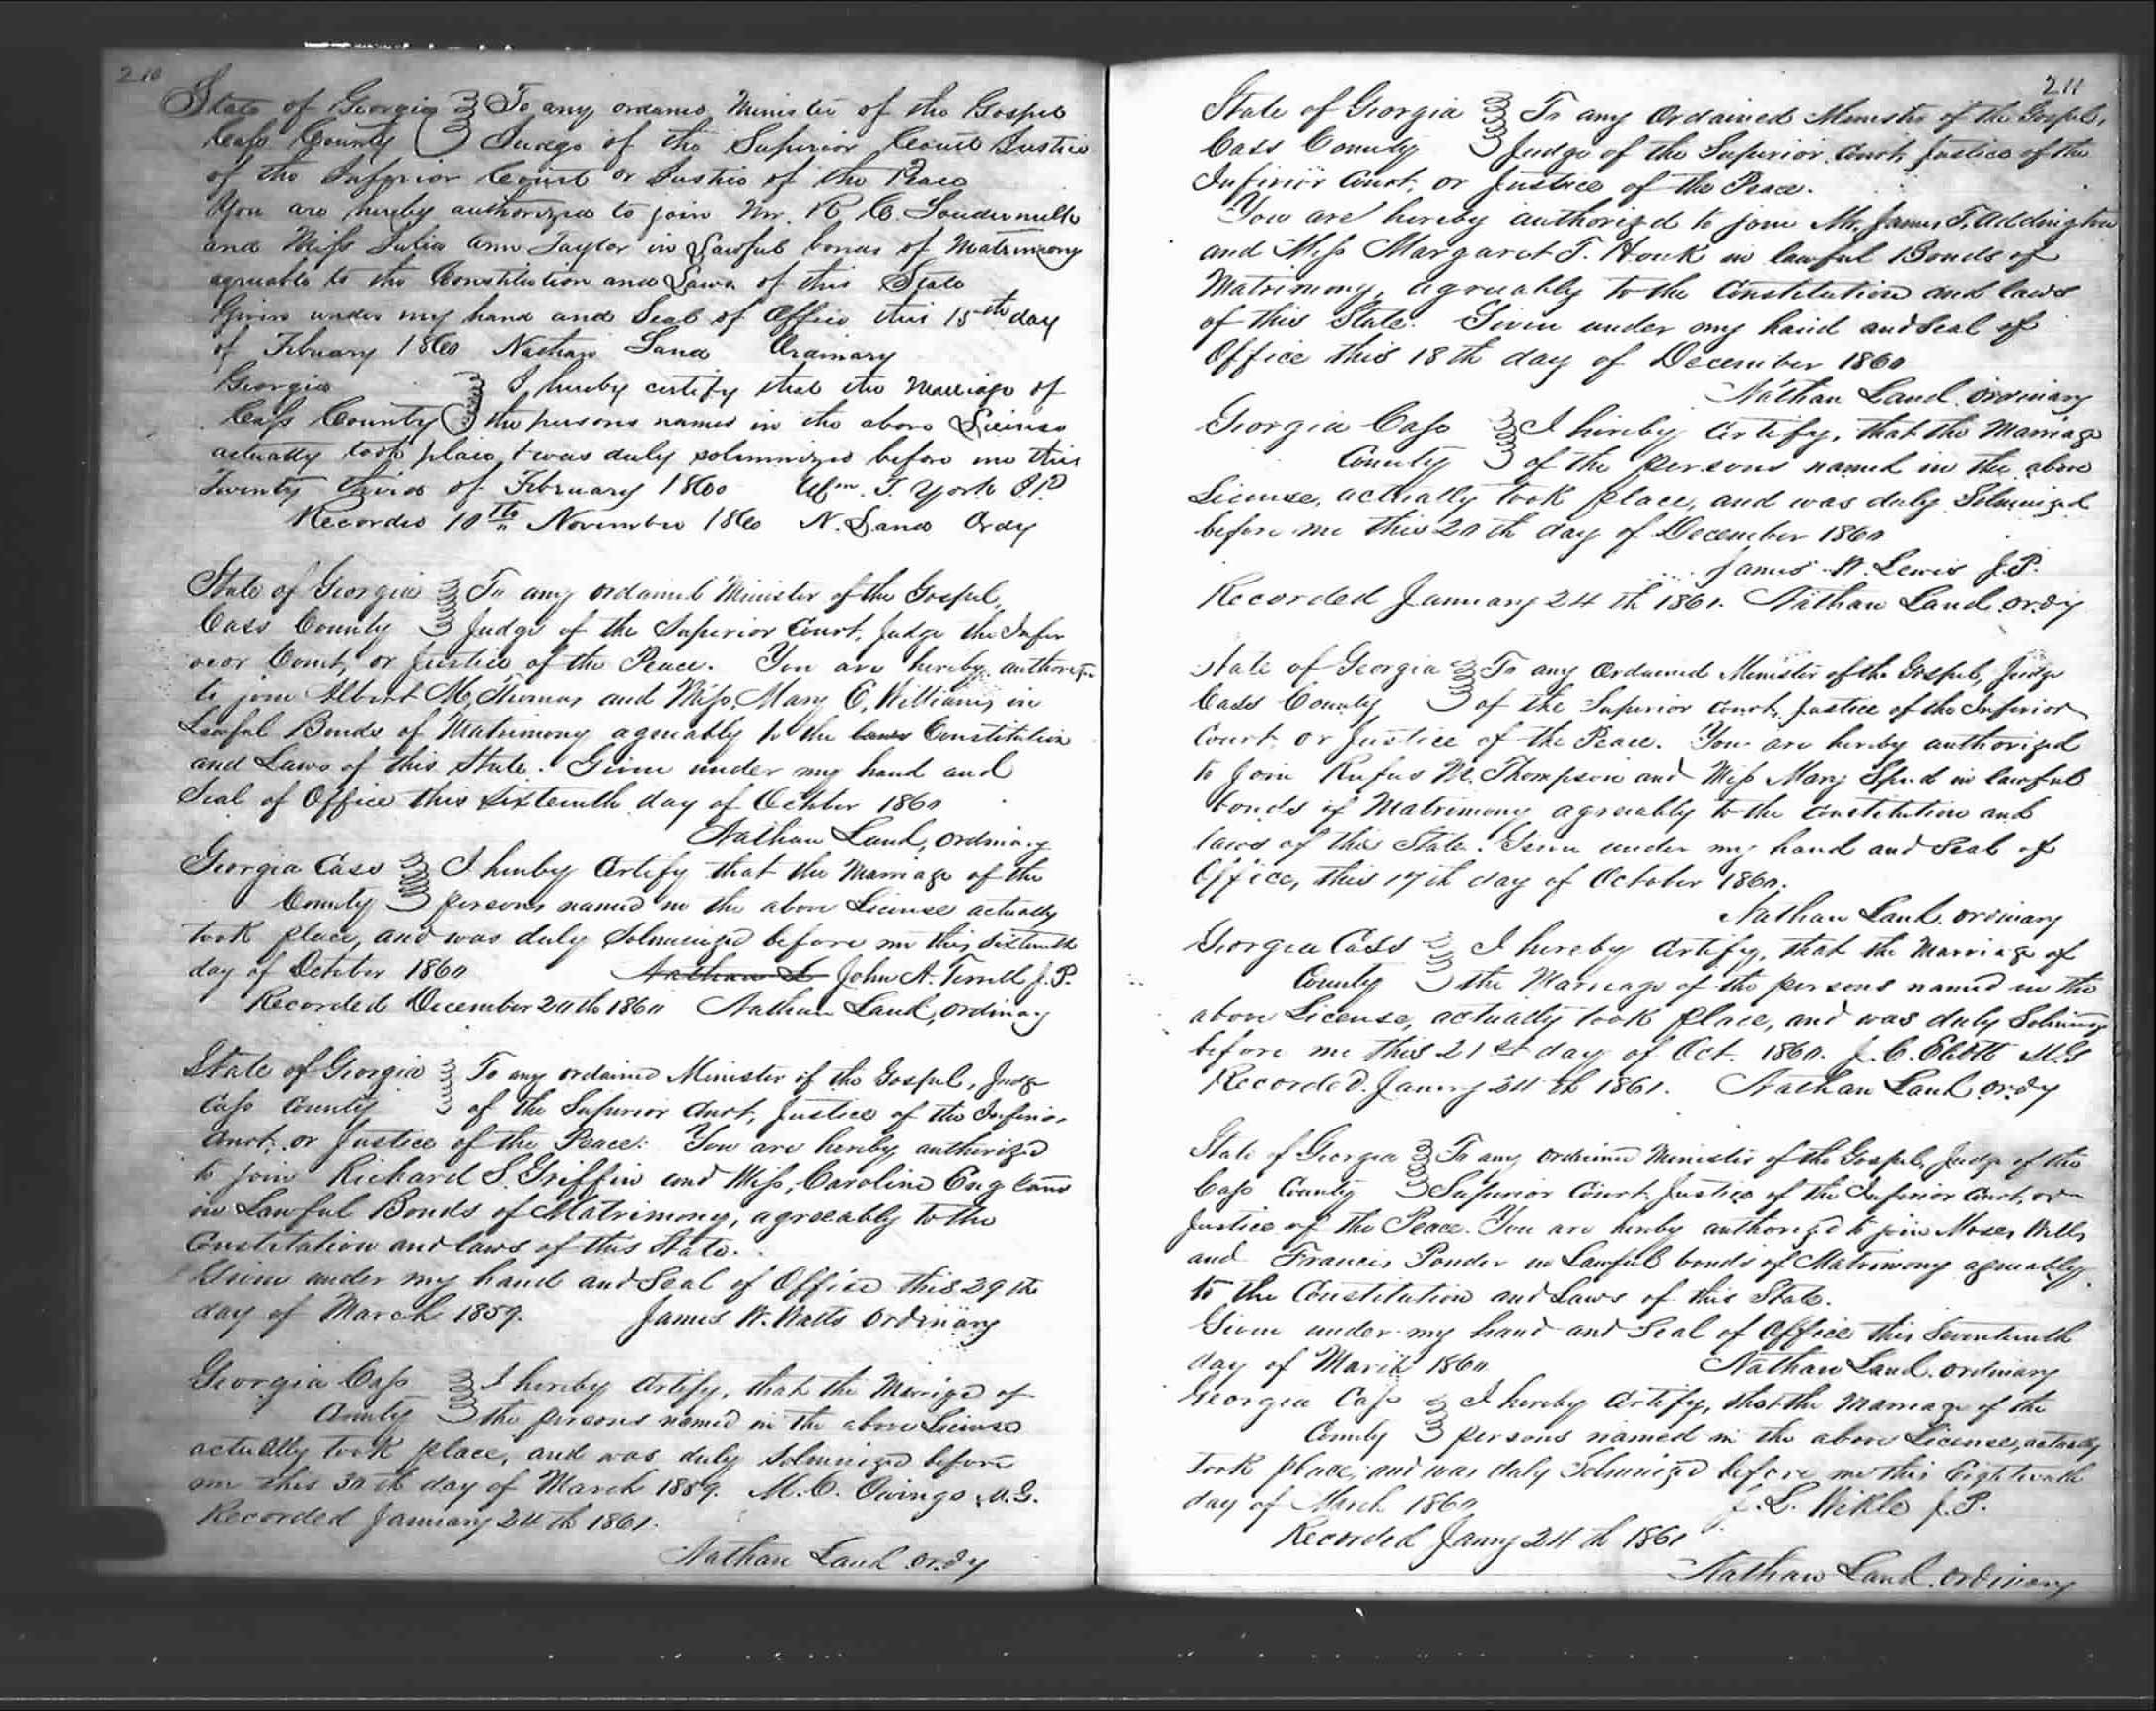 210
State of Georgia To any ordained Minister of the Gospel
Cass County Judge of the Superior Court Justice
of the Inferior Court or Justice of the Peace
You are hereby authorized to join Mr. R. C. Loudermilk
and Miss Julia Ann Taylor in Lawful bonds of Matrimony
agreeable to the Constitution and Laws of this State
Given under my hand and Seal of Office this 15th day
of February 1860 Nathan Land Ordinary
Georgia I hereby certify that the Marriage of
Cass County the persons named in the above License
actually took place & was duly solemnized before me this
Twenty third of February 1860 Wm. T. York J.P.
Recorded 10th November 1860 N. Land Ordy
State of Georgia To any ordained Minister of the Gospel,
Cass County Judge of the Superior Court, Judge the Infer
or Court, or Justice of the Peace. You are hereby
to join Albert M. Thomas and Miss, Mary C, Williams in
Lawful Bonds of Matrimony agreeably to the laws Constitution
and Laws of this State. Given under my hand and
Seal of Office this sixteenth day of October 1860
Nathan Land, ordinary
Georgia Cass I hereby Certify that the Marriage of the
County persons named in the above License actually
took place, and was duly Solemnized before me this sixteenth
day of October 1860 Nathan L John A. Terrell J.P.
Recorded December 20th 1860 Nathan Land, ordinary
State of Georgia To any ordained Minister of the Gospel, Judge
Cass County of the Superior Court, Justice of the Inferior
Court, or Justice of the Peace. You are hereby authorized
to join Richard S. Griffin and Miss, Caroline England
in Lawful Bonds of Matrimony, agreeably to the
Constitution and laws of this State.
Given under my hand and Seal of Office this 29th
day of March 1859. James W. Watts Ordinary
Georgia Cass I hereby Certify, that the Marrige of
County the persons named in the above License
actually took place, and was duly Solemnized before
me this 30th day of March 1859. M. C. Owings M.G.
Recorded January 24th 1861.
Nathan Land ordy
211
State of Georgia To any Ordained Minister of the Gospel,
Cass County Judge of the Superior Court, Justice of the
Inferior Court, or Justice of the Peace.
You are hereby authorized to join Mr. James T. Addington
and Miss Margaret T. Houk in lawful Bonds of
Matrimony, agreeably to the Constitution and laws
of this State. Given under my hand and Seal of
Office this 18th day of December 1860
Nathan Land, ordinary
Georgia Cass I hereby Certify, that the Marriage
County of the persons named in the above
License, actually took place, and was duly Solemnized
before me this 20th day of December 1860
James W. Lewis J.P.
Recorded January 24th 1861. Nathan Land ordy
State of Georgia To any Ordained Minister of the Gospel, Judge
Cass County of the Superior court, Justice of the Inferior
Court, or Justice of the Peace. You are hereby authorized
to join Rufus M. Thompson and Miss Mary in lawful
bonds of Matrimony agreeably to the constitution and
laws of this State. Given under my hand and Seal of
Office, this 17th day of October 1860.
Nathan Land. ordinary
Georgia Cass I hereby Certify, that the Marriage of
County the Marriage of the persons named in the
above License, actually took place, and was duly
before me this 21st day of Oct. 1860. J. C. M.G
Recorded. Janury 24th 1861. Nathan Land ordy
State of Georgia To any ordained Minister of the Gospel, Judge of the
Cass County Superior Court, Justice of the Inferior Court, or
Justice of the Peace. You are hereby authorized to join Moses Wells
and Francis Ponder in Lawful bonds of Matrimony agreeably
to the Constitution and Laws of this State.
Given under my hand and Seal of Office this Seventeenth
day of March 1860 Nathan Land. ordinary
Georgia Cass I hereby Certify, that the Marriage of the
County persons named in the above License, actually
took place, and was duly Solemnized before me this Eighteenth
day of March 1860 J. L. Wikle J.P.
Recorded Janry 24th 1861
Nathan Land. ordinary